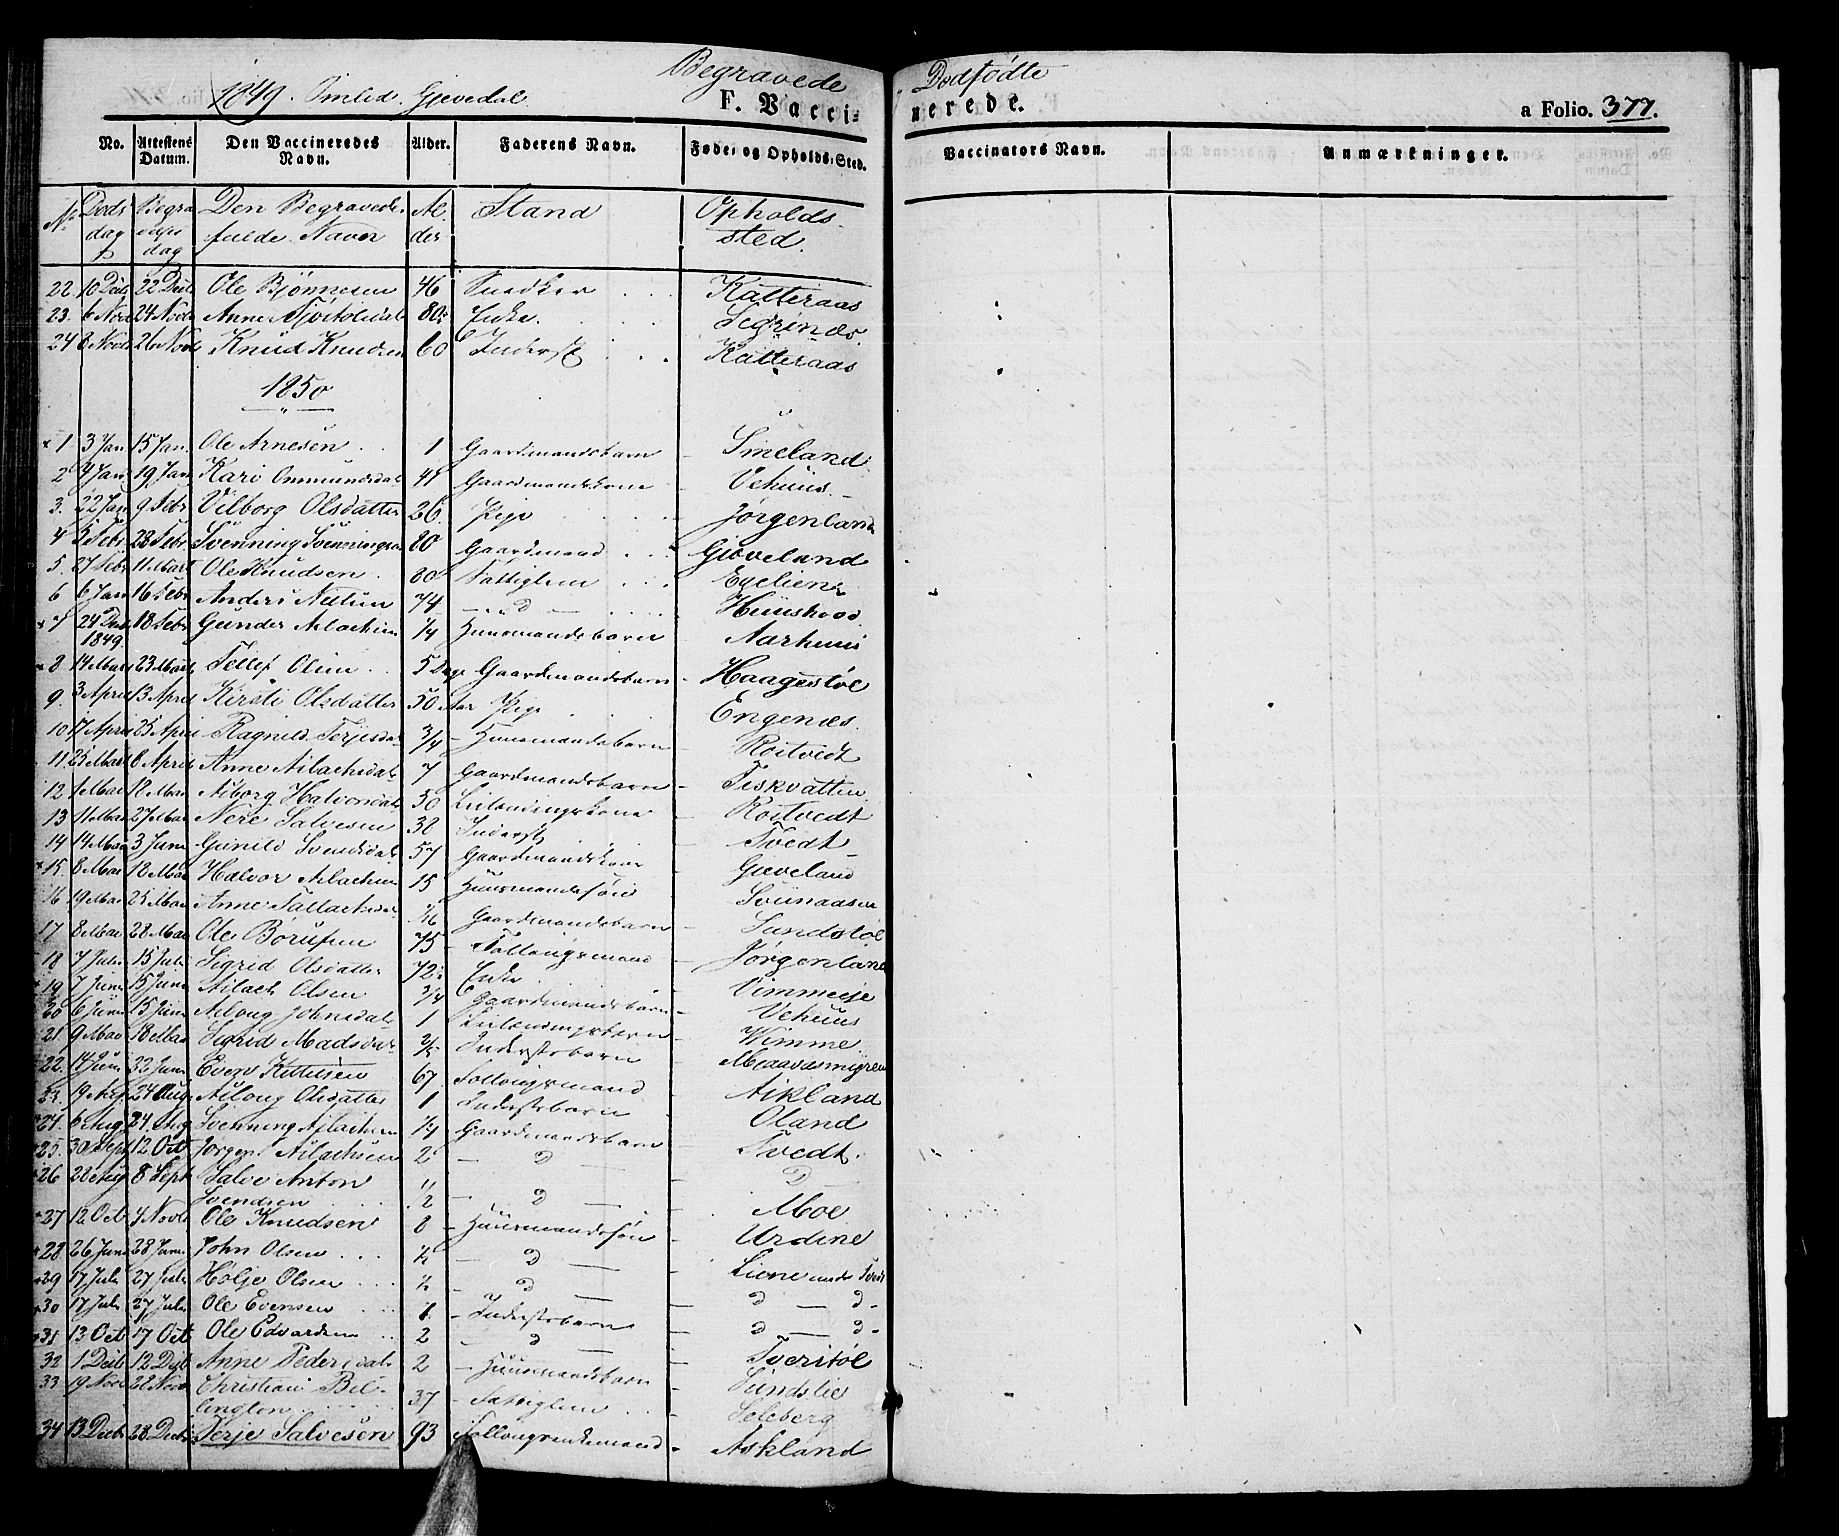 Begravede
Dødfødte
1849. Omlid. Gjevedal
F. Vacci=
nerede.
a Folio. 377.
No. Attestens Datum. Den Vaccineredes Navn. Alder. Faderens Navn. Føde- og Opholds-Sted.
Vaccinators Navn. Anmærkninger.
No Døds dag Begra velses dag Den Begravedes fulde Navn Al der Stand Opholds sted.
22. 10 Decb 22 Decb Ole Bjønnesen 46 Snedker Katteraas
23. 6 Nov 24 Novb Anne 80 Enke. Segrinæs.
24 8 Novb 26 Novb Knud Knudsen 60 Inderst Katteraas
1850
1 3 Jan 15 Jan. Ole Arnesen 1 Gaardmandsbarn Smeland
2 4 Jan 19 Jan Kari Ommundsdat 41 Gaardmandskone Vehuus
3. 22 Jan 9 Febr Vilborg Olsdatter 26. Pige Jørgenland
4 5 Febr 28 Febr. Svenning Svenningsen 80 Gaardmand Gjeveland
5. 27 Febr 11 Mart Ole Knudsen 80 Fattiglem Egelien
6 6 Jan 16 Febr Anders Nilsen 74 — d — Huushoved
7 24 Dec 1849. 18 Febr Gunder Aslachsen 1/4 Huusmandsbarn Aarhuus
8 14 Mart 23 Mart Tellef Olsen 5 Dage Gaardmandsbarn Haagestøl
9. 3 April 13 April Kirsti Olsdatter 50 Aar Pige Engenæs.
10 17 April 25 April Ragnild Terjesdat 3/4 Huusmandsbarn Rostvedt
11 25 Mart 6 April Anne Aslachsdat 7 Gaardmandsbarn Fiskvatten
12. 1 Mai 12 Mai Asborg Halvorsdat 50 Leilendingskone Rostvedt
13 11 Mai 27 Mai Nere Salvesen 38 Inderst Tvedt
14 14 Mai 3 Juni Gunild Svendsdat 57 Gaardmandskone Gjeveland
15. 8 Mai 18 Mai Halvor Aslachsen 15 Huusmandssøn Svinaasen
16 19 Mai 25 Mai Anne Tallachsdat Gaardmandsbarn Sundstøl
17 8 Mai 28 Mai Ole Børufsen 75 Follougsmand Jørgenland
18 7 Juli 15 Juli Sigrid Olsdatter 72 Enke Vimmeeje
19 7 Juni 15 Juni Aslach Olsen 3/4 Gaardmandsbarn Vehuus
20 6 Juni 15 Juni Asloug Johnsdat 1 Leilendingsbarn Wimme
21. 9 Mai 18 Mai Sigrid Madsdat Inderstsbarn Maavasmyren
22. 14 Juni 22 Juni Even Kittelsen 67 Follougsmand Askland
23. 19 Aug 24 Aug Asloug Olsdatter 1 Inderstsbarn Oland
24. 6 Aug 24 Aug Svenning Aslachsen 1/4 Gaardmandsbarn Tvedt.
25. 30 Sept 12 Oct Jørgen Aslachsen 2 — d — d
26 28 Aug 8 Sept Salve Anton Svendsen 1/2 — d — Moe
27 12 Oct 4 Novb Ole Knudsen 8 Huusmandssøn Urdene
28 26 Juni 28 Juni John Olsen 1/2 — d — Liene under Tvedt
29 17 Juli 27 Juli Holje Olsen 1/2 — d — d — d
30 17 Juli 27 Juli Ole Evensen 1 Inderstsbarn d — d
31 13 Oct 17 Oct. Ole Edvardsen 2 — d — Tveitøl
32 1 Decb 12 Decb Anne Pedersdat. 2 Huusmandsbarn Lindslie
33 19 Nov 28 Nov Christian Bellington 37 Fattiglem Seleberg
34 13 Decb 28 Decb Terje Salvesen 93 Follougsenkemand Askland